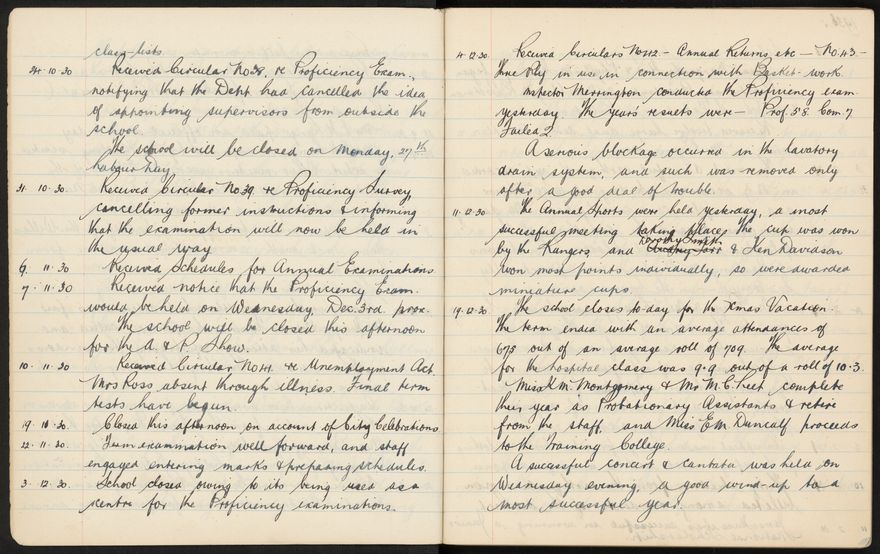 class-lists.
24.10.30 Received Circular No 38, re Proficiency Exam.,
notifying that the Dept had cancelled the idea
of appointing supervisors from outside the
school.
The school will be closed on Monday, 27th
Labour Day.
31.10.30. Received Circular No 39 re Proficiency Survey,
cancelling former instructions & informing
that the examination will now be held in
the usual way.
6.11.30 Received Schedules for Annual Examinations.
7.11.30 Received notice that the Proficiency Exam.
would be held on Wednesday, Dec. 3rd. prox.
The school will be closed this afternoon
for the A. & P. Show.
10.11.30 Received Circular No 41. re Unemployment Act.
Mrs Ross absent through illness. Final term
tests have begun.
19.10.30. Closed this afternoon on account of City Celebrations
22.11.30. Term examination well forward, and staff
engaged entering marks & preparing schedules.
3.12.30. School closed owing to its being used as a
centre for the Proficiency examinations.
4.12.30. Received Circulars No 42 - Annual Returns, etc - No. 43 -
in use in connection with Basket-work.
Inspector Merrington conducted the Proficiency exam
yesterday. The years' results were - Prof. 58. Com. 7
Failed 2.
A serious blockage occurred in the lavatory
drain system, and such was removed only
after a good deal of trouble.
11.12.30 The Annual Sports were held yesterday, a most
successful meeting taking place. The cup was won
Dorothy Smith
by the Rangers and & Ken Davidson
won most points individually, so were awarded
miniature cups.
19.12.30 The school closes to-day for the Xmas Vacation.
The term ended with an average attendances of
675 out of an average roll of 709. The average
for the hospital class was 9.9 out of a roll of 10.3.
Miss K. M. Montgomery & Mr M. C. Leet complete
their year as Probationary Assistants & retire
from the staff, and Miss E. M. Duncalf proceeds
to the Training College.
A successful concert & cantata was held on
Wednesday evening, a good wind-up to a
most successful year.